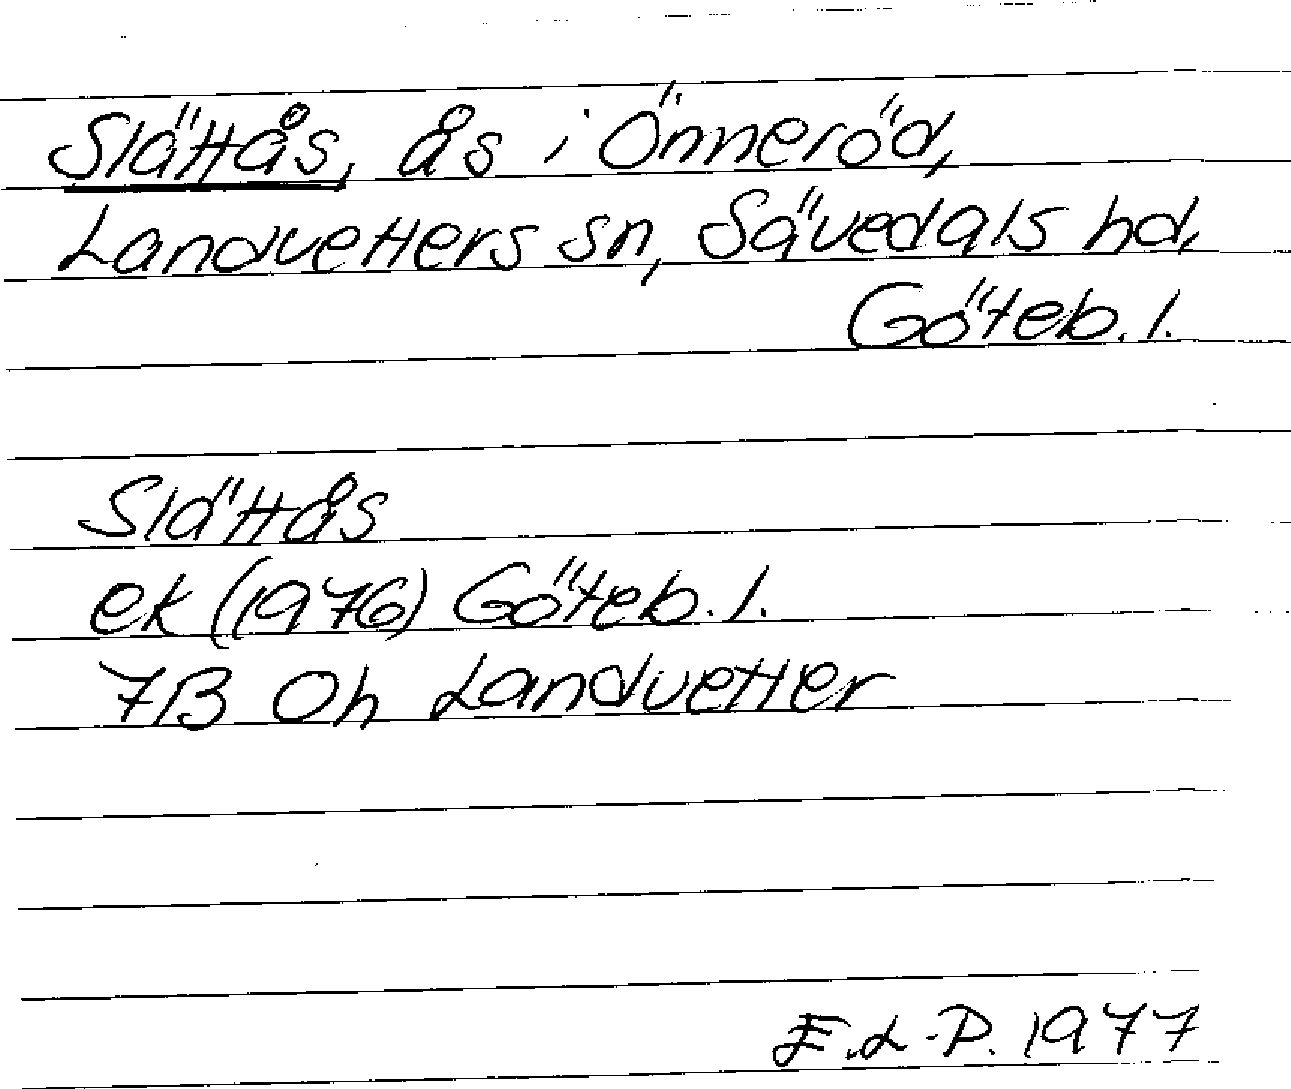 Slättås, ås i Önneröd,
Landvetters sn, Sävedals hd,
Göteb. l.
Slättås
ek (1976) Göteb. l.
7B Oh Landvetter
E.L-P. 1977